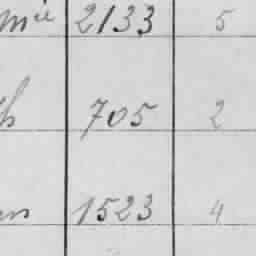 mie 2133 5
th 705 2
1523 4